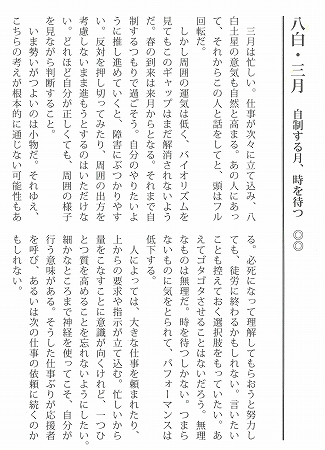 八白・三月　自制する月、時を待つ　◎◎
三月は忙しい。仕事が次々に立て込み、八
白土星の意気も自然と高まる。あの人にあっ
て、それからこの人と話をしてと、頭はフル
回転だ。
しかし周囲の運気は低く、バイオリズムを
見てもこのギャップはまだ解消されないよう
だ。春の到来は来月からとなる。それまで自
制するつもりで過ごそう。自分のやりたいよ
うに推し進めていくと、障害にぶつかりやす
い。反対を押し切ってみたり、周囲の出方を
考慮しないまま進もうとするのはいただけな
い。どれほど自分が正しくても、周囲の様子
を見ながら判断すること。
いま勢いがつよいのは小物だ。それゆえ、
こちらの考えが根本的に通じない可能性もあ
る。必死になって理解してもらおうと努力し
ても、徒労に終わるかもしれない。言いたい
ことも控えておく選択肢をもっていたい。あ
えてゴタゴタさせることはないだろう。無理
なものは無理だ。時を待つしかない。つまら
ないものに気をとられて、パフォーマンスは
低下する。
人によっては、大きな仕事を頼まれたり、
上からの要求や指示が立て込む。忙しいから
量をこなすことに意識が向くけれど、一つひ
とつ質を高めることを忘れないようにしたい。
細かなところまで神経を使ってこそ、自分が
行う意味がある。そうした仕事ぶりが応援者
を呼び、あるいは次の仕事の依頼に続くのか
もしれない。